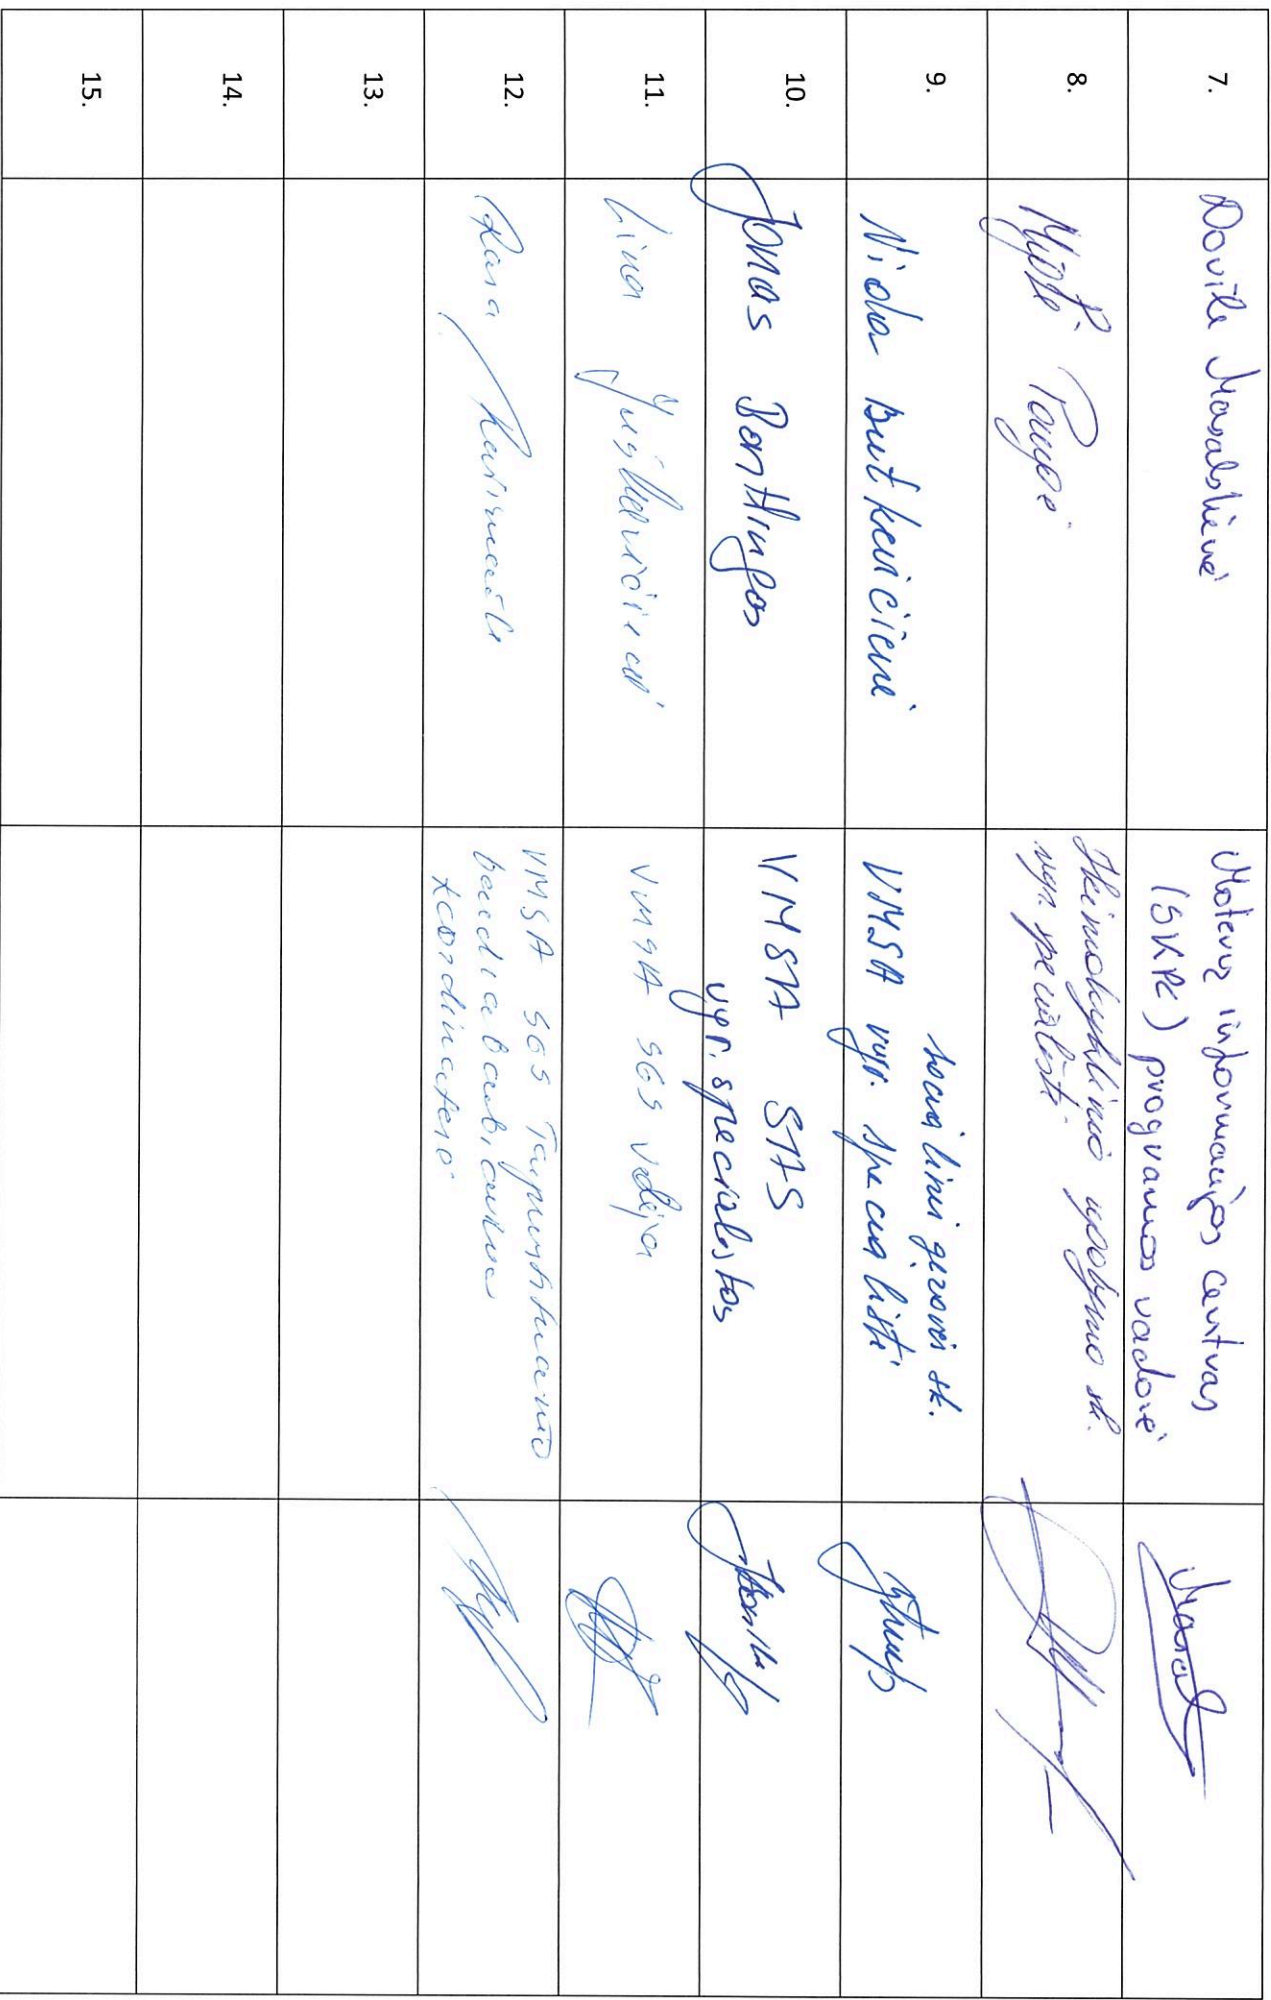 7.
Dovilė Masalskienė
Moterų informacijos centras
(SKPC) programos vadovė
8.
Ikimokyklinio ugdymo sk.
vyr. specialistė
9.
Nida Butkevičienė
socialinės gerovės sk.
VMSA vyr. specialistė
10.
Jonas Bartlingas
VMSA STAS
vyr. specialistas
11.
Lina Juškevičienė
VMSA SGS vedėja
12.
Rasa
VMSA SGS Tarpinstitucinio
bendradarbiavimo
koordinatorė
13.
14.
15.